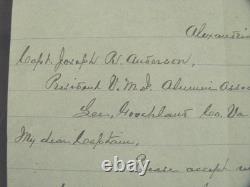 Alexandria
Capt. Joseph R. Anderson,
President V.M.I. Alumni Assoc
Lee, Goochland Co. Va
My dear Captain,
Please accept